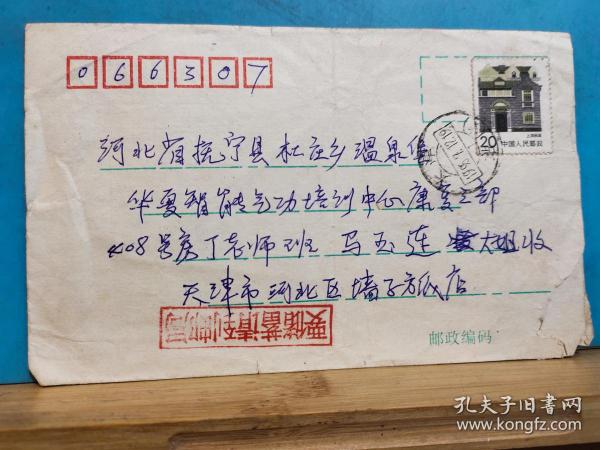 066307
上海民居
20
中国人民邮政
1996.1.12.19
河北省抚宁县杜庄乡温泉堡
华夏智能气功培训中心康复二部
408号房丁老师班 马玉莲 大姐收
天津市河北区墙子方纸店
要储蓄请到邮局
邮政编码
孔夫子旧书网
www.kongfz.com